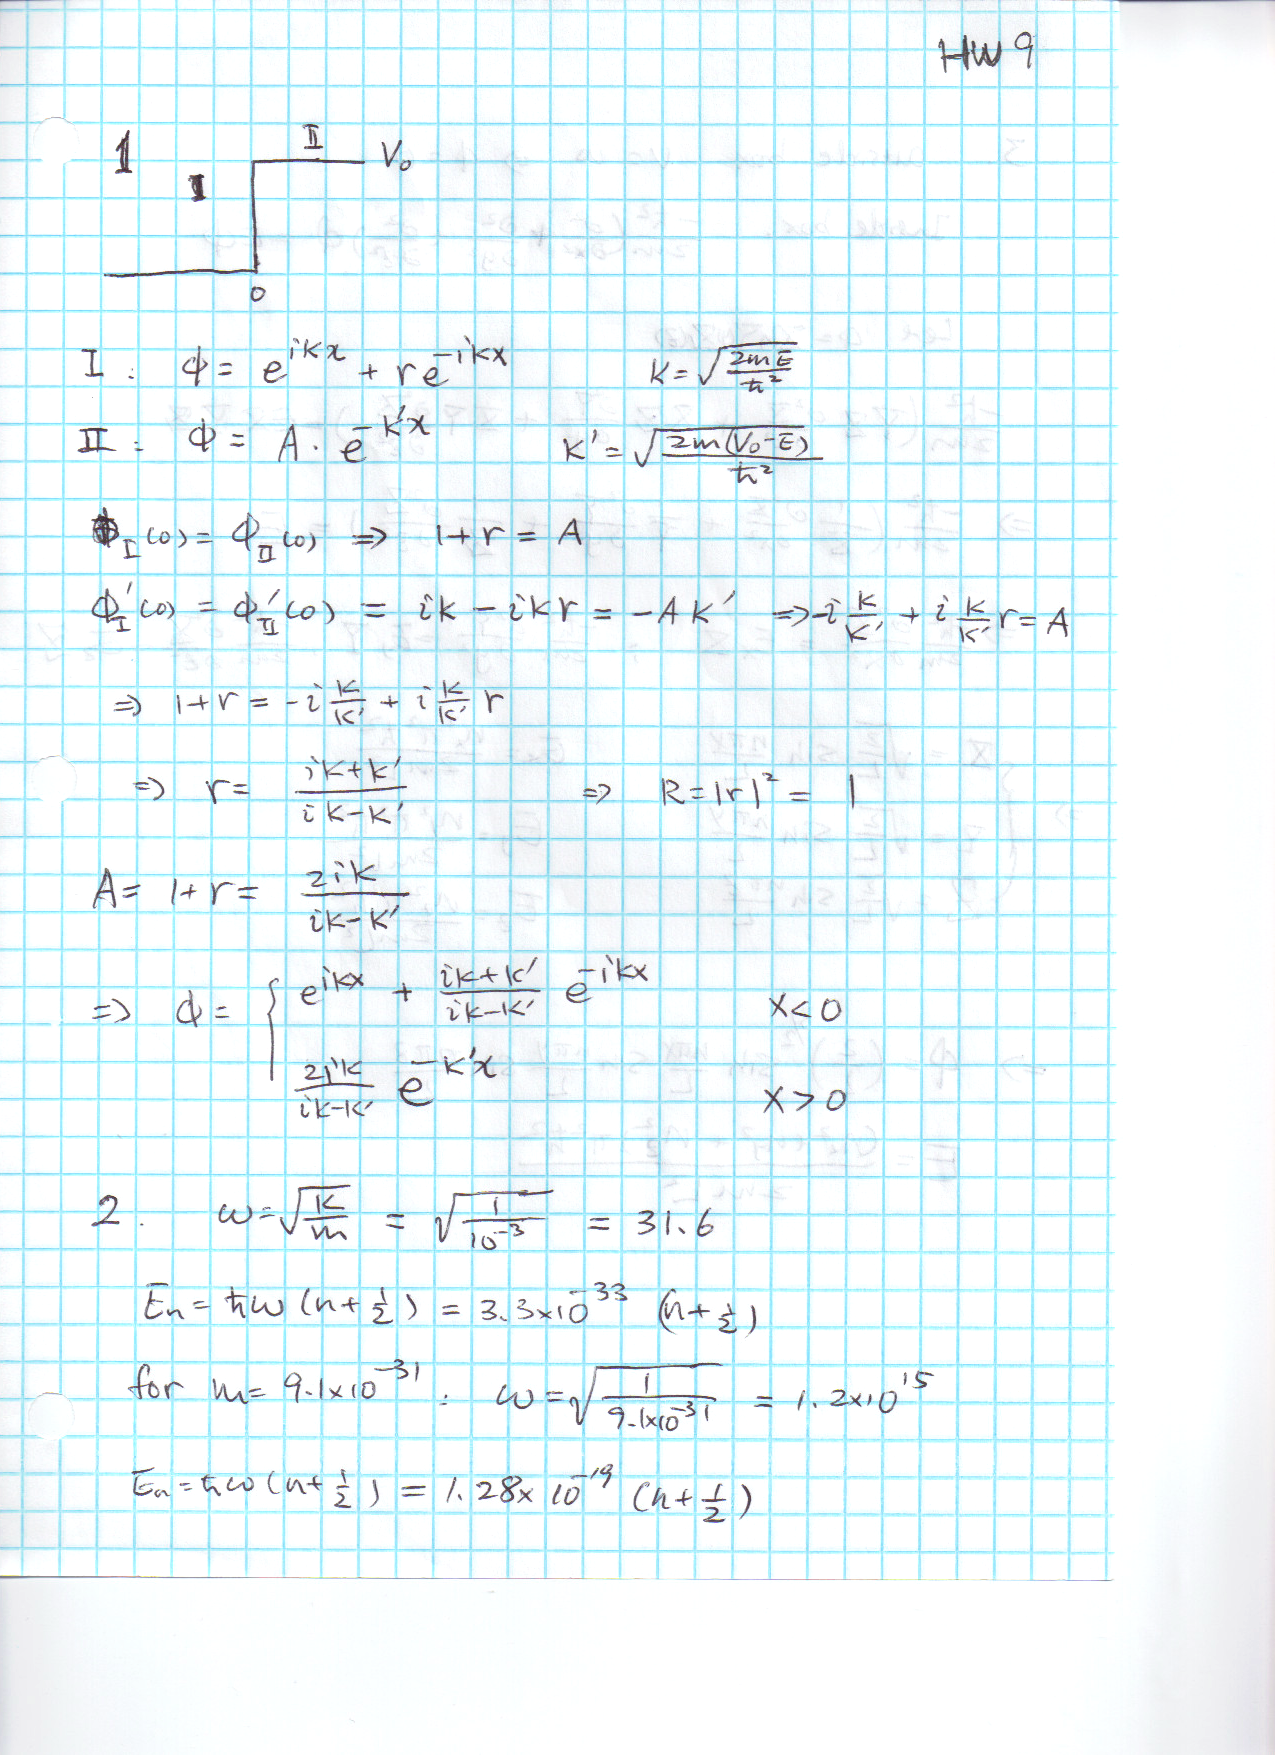 HW 9
1
I
II
V₀
0
I : ϕ = e^{ikx} + r e^{-ikx}    k = √(2mE/ħ²)
II : ϕ = A · e^{-k'x}    k' = √(2m(V₀-E)/ħ²)
ϕ_I(0) = ϕ_II(0) ⇒ 1+r = A
ϕ_I'(0) = ϕ_II'(0) = ik - ikr = -Ak' ⇒ -i k/k' + i k/k' r = A
⇒ 1+r = -i k/k' + i k/k' r
⇒ r = (ik+k')/(ik-k')    ⇒ R = |r|² = 1
A = 1+r = 2ik/(ik-k')
⇒ ϕ = { e^{ikx} + (ik+k')/(ik-k') e^{-ikx}    x<0
2ik/(ik-k') e^{-k'x}    x>0
2. ω = √(k/m) = √(1/10⁻³) = 31.6
Eₙ = ħω (n+½) = 3.3×10⁻³³ (n+½)
for m = 9.1×10⁻³¹ : ω = √(1/(9.1×10⁻³¹)) = 1.2×10¹⁵
Eₙ = ħω (n+½) = 1.28×10⁻¹⁹ (n+½)